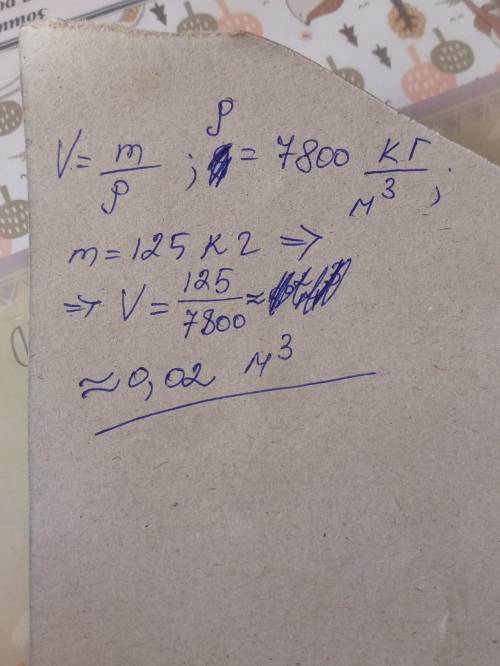 V = m/ρ ; ρ = 7800 кг/м³ ;
m = 125 кг ⇒
⇒ V = 125/7800 ≈
≈ 0,02 м³